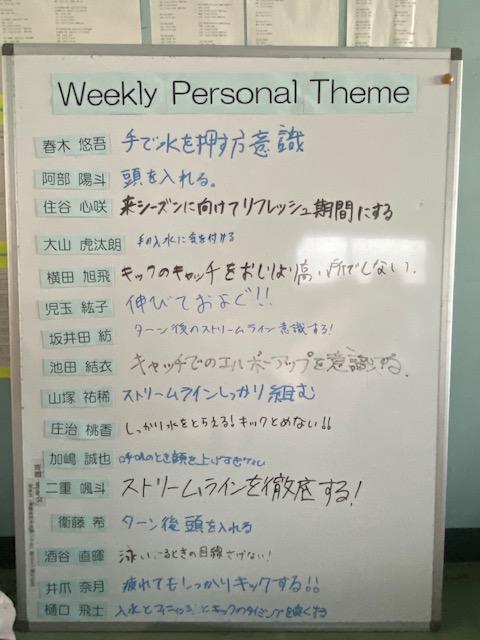 Weekly Personal Theme
春木 悠吾 手で水を押す方意識
阿部 陽斗 頭を入れる。
住谷 心咲 来シーズンに向けてリフレッシュ期間にする
大山 虎汰朗 手の入水に気を付ける
横田 旭飛 キックのキャッチをおしりより高い所でしない.
児玉 紘子 伸びておよぐ!!
坂井田 紡 ターン後のストリームライン意識する!
池田 結衣 キャッチでのエルボーアップを意識する.
山塚 祐稀 ストリームラインしっかり組む
庄治 桃香 しっかり水をとらえる!キックとめない!!
加嶋 誠也 呼吸のとき顔を上げすぎない
二重 颯斗 ストリームラインを徹底する!
衛藤 希 ターン後頭を入れる
酒谷 直暉 泳いでるときの目線さげない!
井爪 奈月 疲れてもしっかりキックする!!
樋口 飛士 入水とフィニッシュとキックのタイミングを